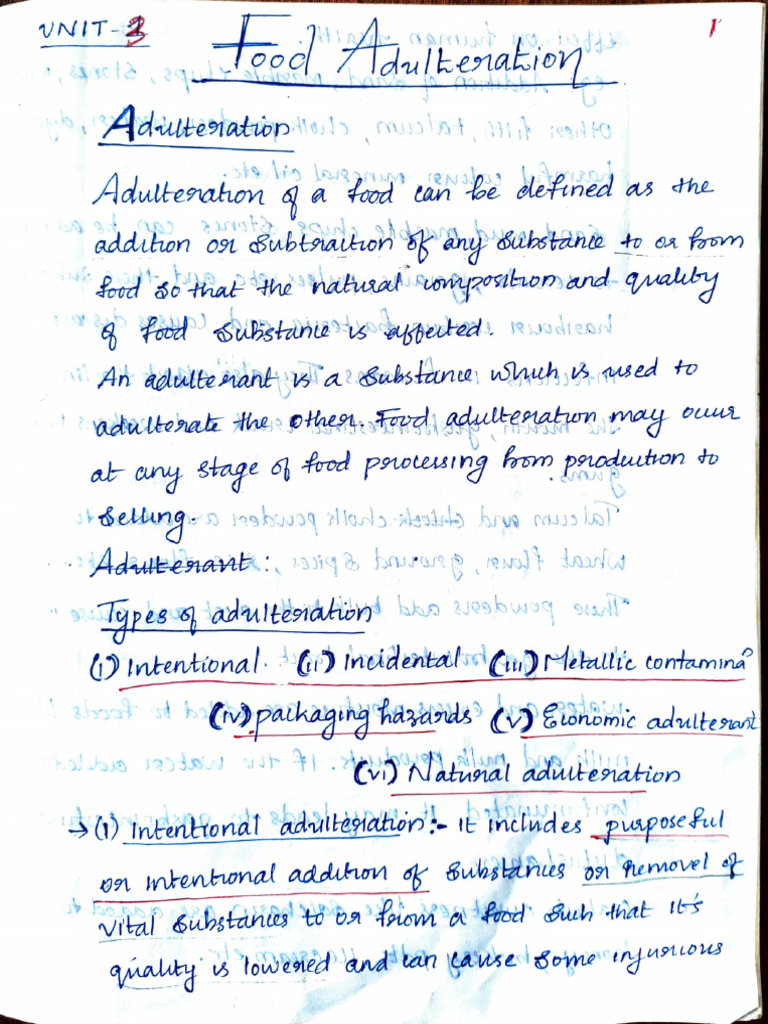 UNIT-3 1
Food Adulteration
Adulteration
Adulteration of a food can be defined as the
addition or subtraction of any substance to or from
food so that the natural composition and quality
of food substance is affected.
An adulterant is a substance which is used to
adulterate the other. Food adulteration may occur
at any stage of food processing from production to
selling.
Adulterant:
Types of adulteration
(i) Intentional. (ii) incidental (iii) Metallic contamina
(iv) packaging hazards (v) Economic adulterant
(vi) Natural adulteration
→ (i) Intentional adulteration:- it includes purposeful
or intentional addition of substances or removel of
vital substances to or from a food such that it's
quality is lowered and can cause some injurious